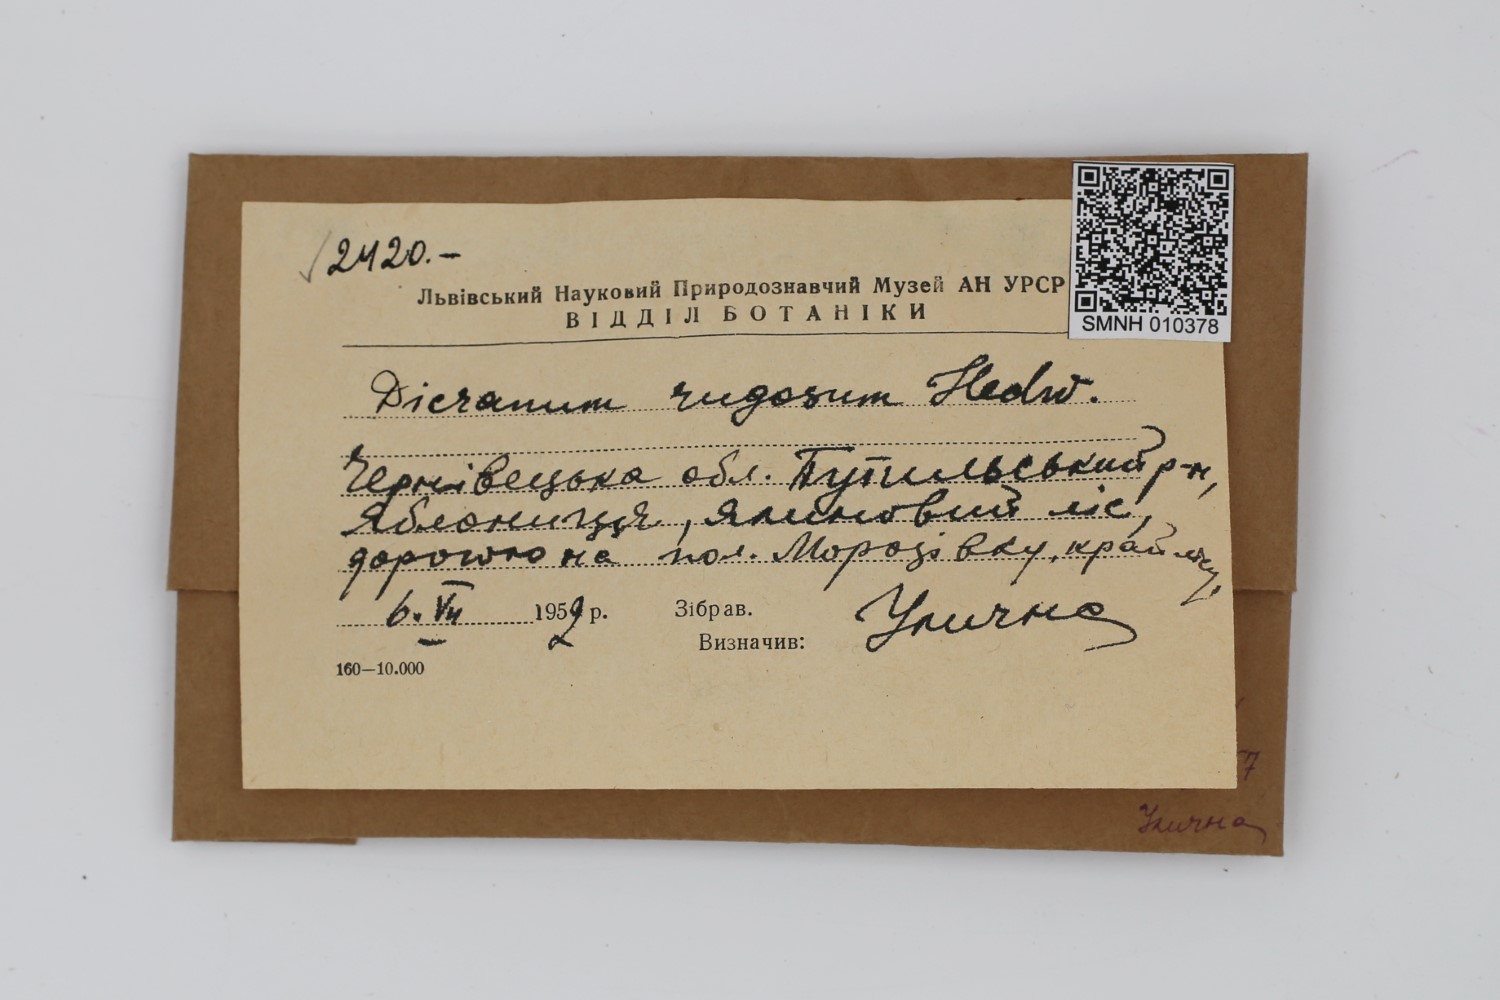 2420.-
Львівський Науковий Природознавчий Музей АН УРСР
ВІДДІЛ БОТАНІКИ
SMNH 010378
Dicranum rugosum Hedw.
Чернівецька обл. Путильський р-н,
Яблониця, ялиновий ліс,
дорогою на пол. край лісу.
6. VII 1959 р. Зібрав. Улична
Визначив:
160—10.000
7
Улична